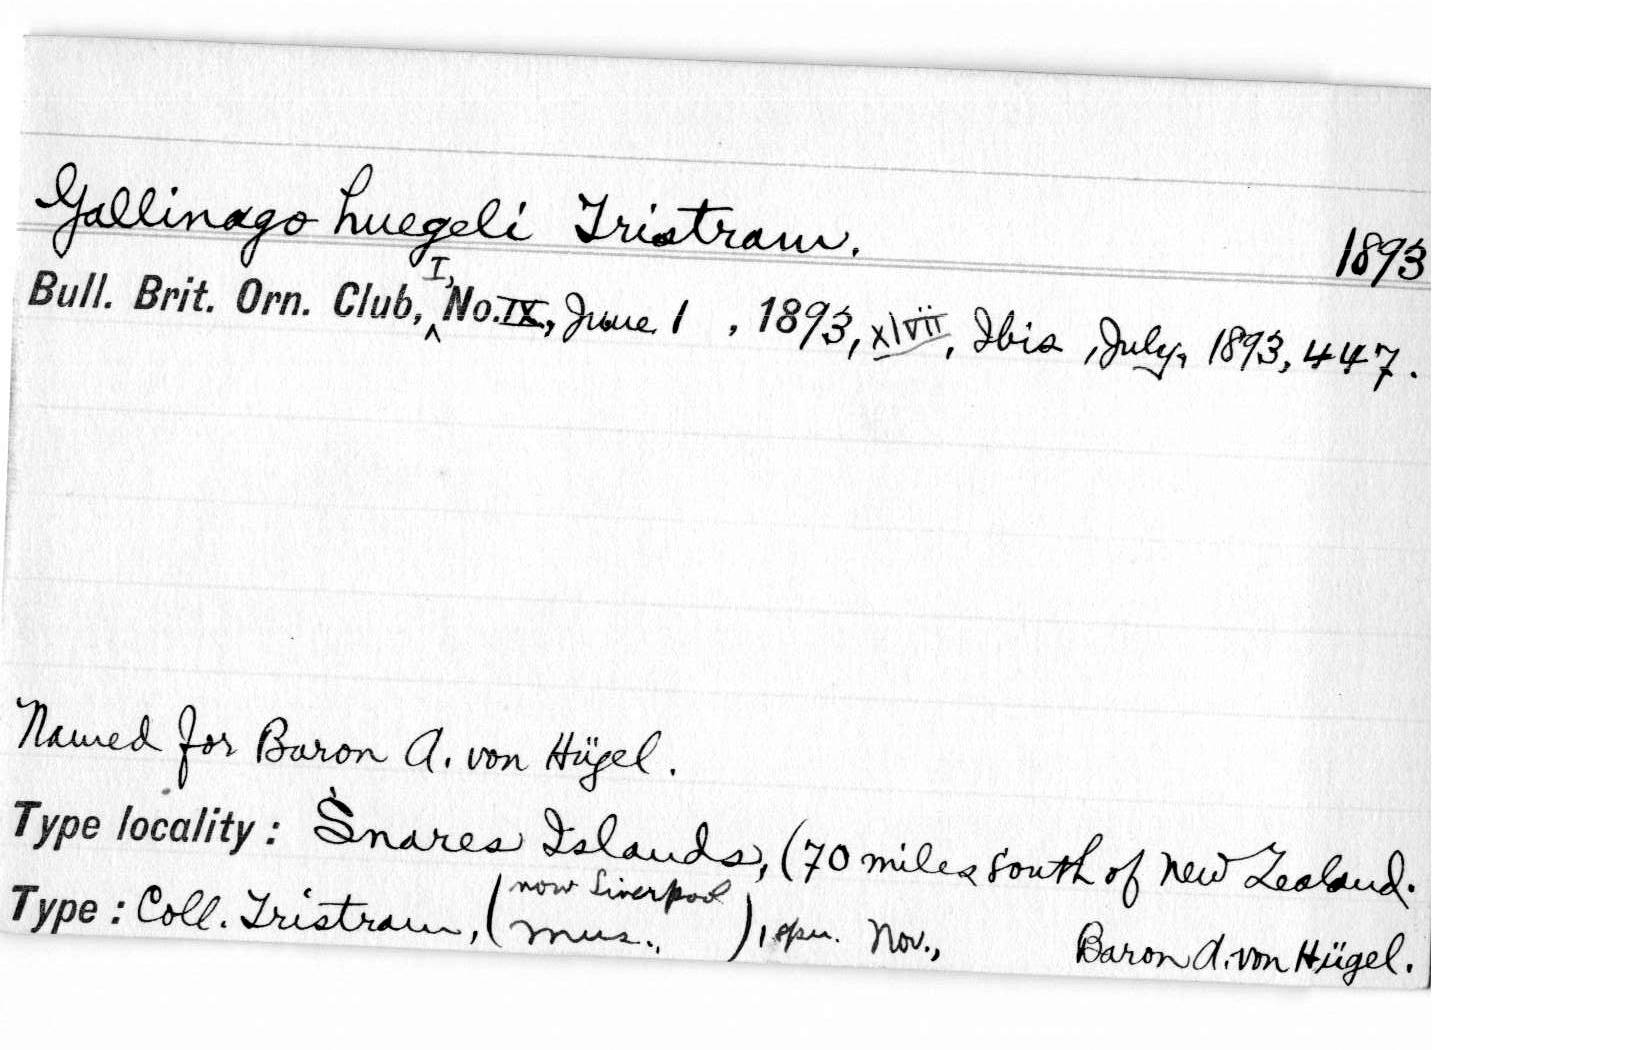 Gallinago huegeli Tristram. 1893
Bull. Brit. Orn. Club, I, No. IX, June 1, 1893, xlvii, Ibis, July, 1893, 447.
Named for Baron A. von Hügel.
Type locality: Snares Islands, (70 miles south of New Zealand.
Type: Coll. Tristram, (now Liverpool Mus.,), 1 spn. Nov., Baron A. von Hügel.